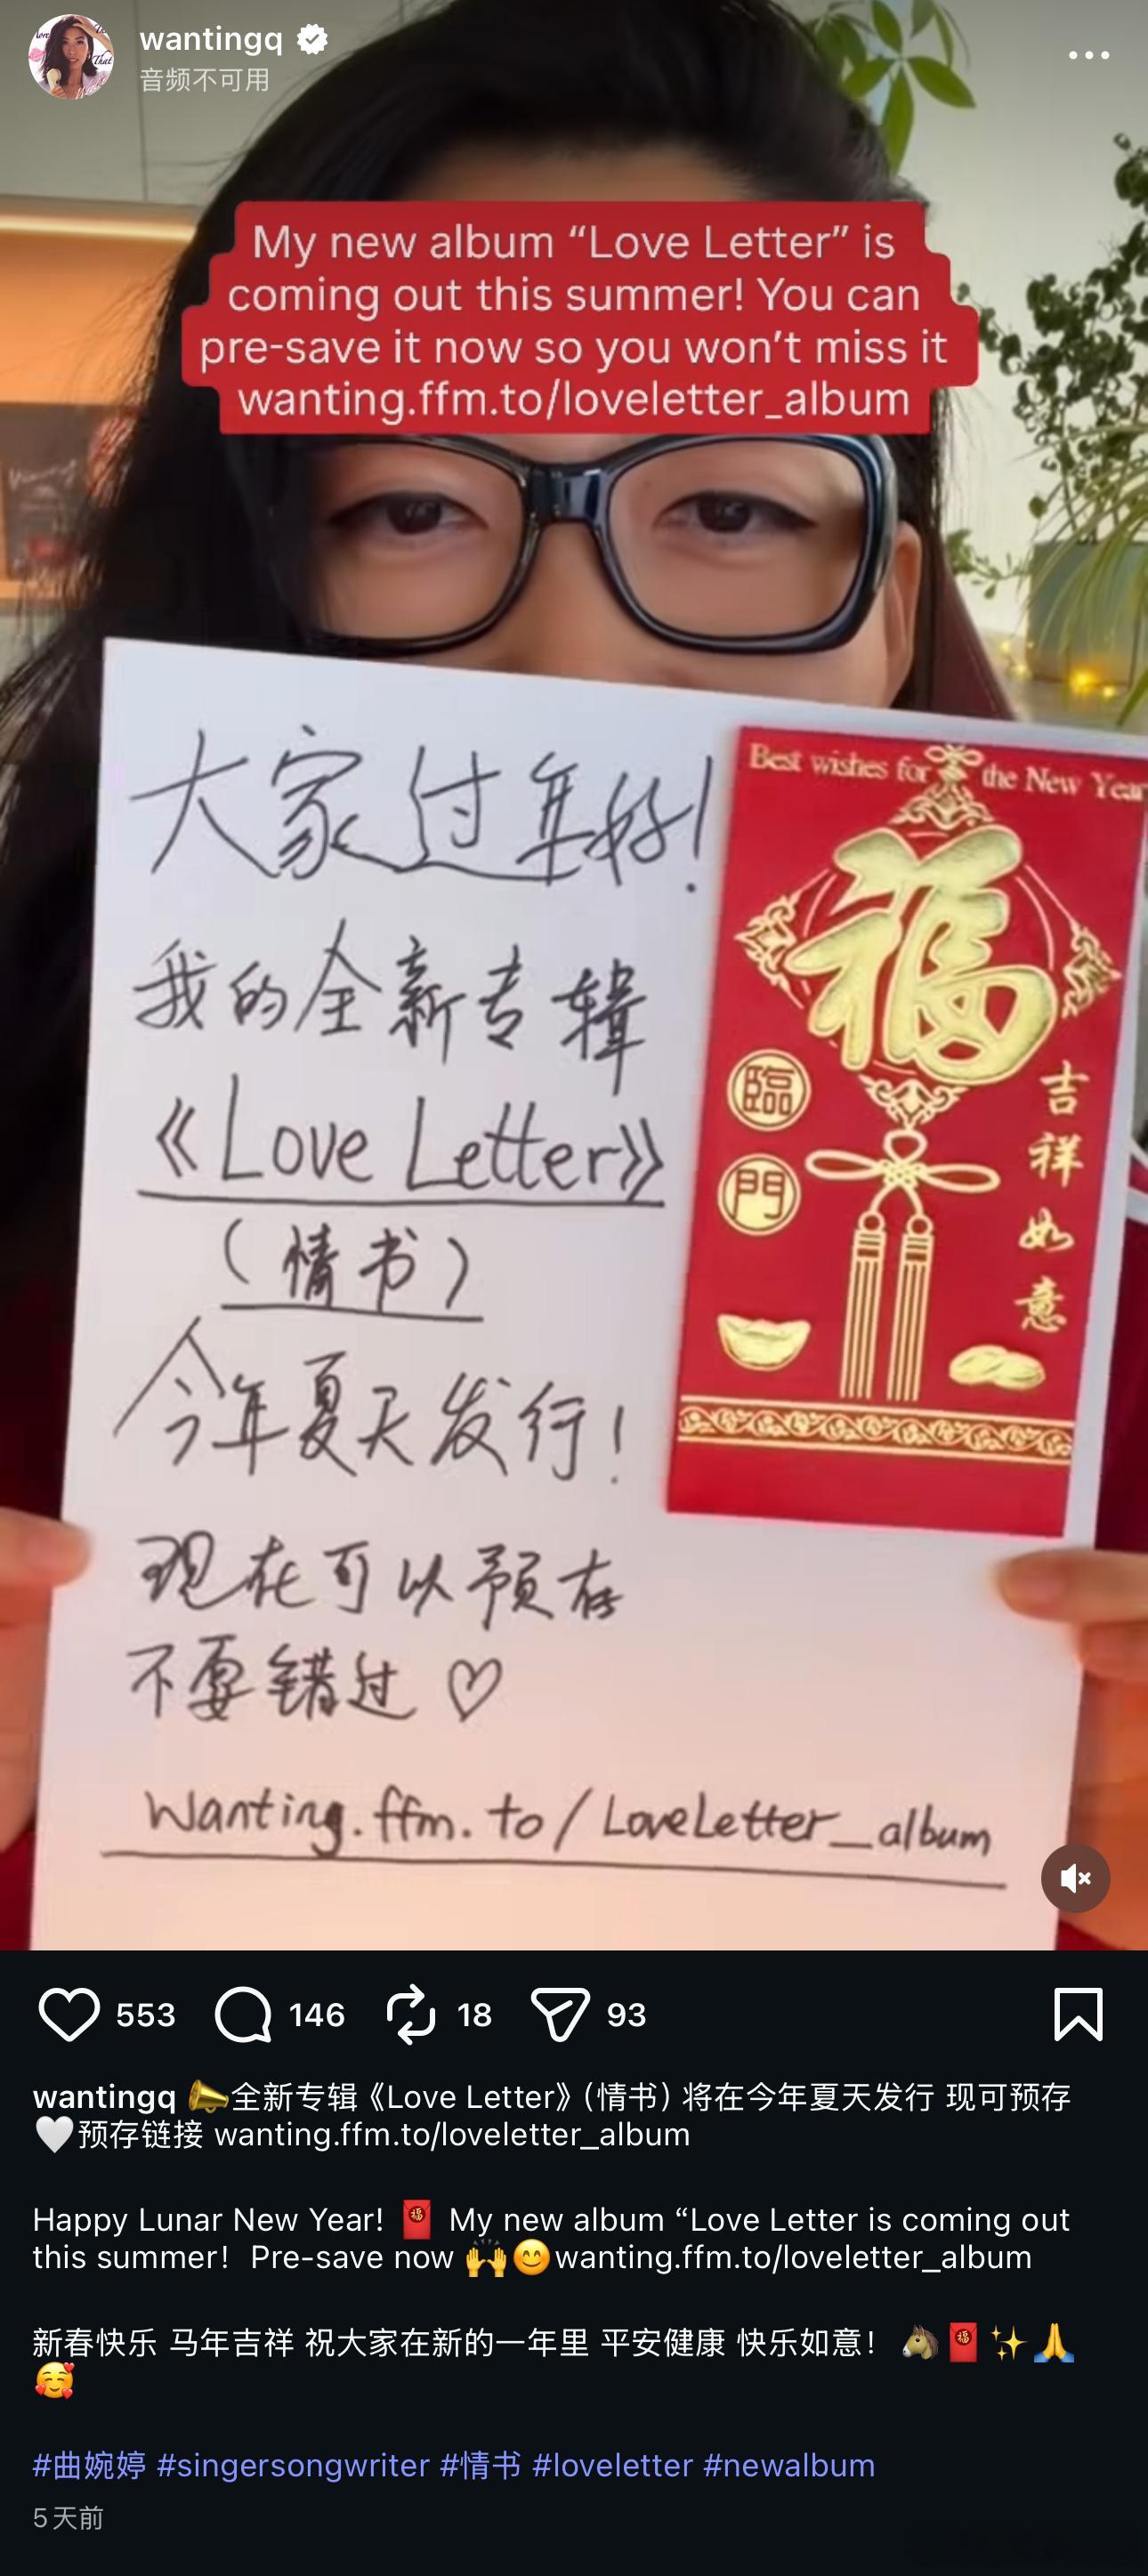 wantingq
音频不可用
My new album “Love Letter” is
coming out this summer! You can
pre-save it now so you won’t miss it
wanting.ffm.to/loveletter_album
大家过年好!
我的全新专辑
《Love Letter》
(情书)
今年夏天发行!
现在可以预存
不要错过♡
Wanting.ffm.to/LoveLetter_album
Best wishes for the New Year
福
臨
門
吉
祥
如
意
553 146 18 93
wantingq 📣全新专辑《Love Letter》(情书) 将在今年夏天发行 现可预存
🤍预存链接 wanting.ffm.to/loveletter_album
Happy Lunar New Year! 🧧 My new album “Love Letter is coming out
this summer！Pre-save now 🙌😊wanting.ffm.to/loveletter_album
新春快乐 马年吉祥 祝大家在新的一年里 平安健康 快乐如意！🐴🧧✨🙏
🥰
#曲婉婷 #singersongwriter #情书 #loveletter #newalbum
5天前